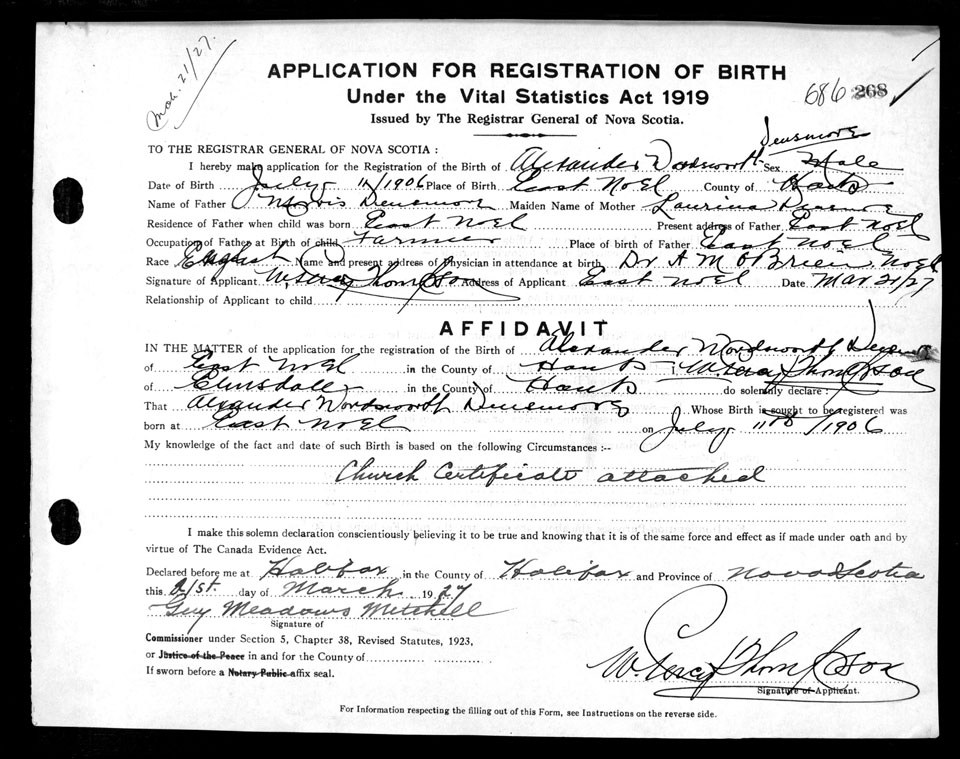 Mch. 21/27.
APPLICATION FOR REGISTRATION OF BIRTH
Under the Vital Statistics Act 1919
686 268
Issued by The Registrar General of Nova Scotia.
Densmore
TO THE REGISTRAR GENERAL OF NOVA SCOTIA :
I hereby make application for the Registration of the Birth of Alexander Wordsworth Sex Male
Date of Birth July 11/1906 Place of Birth East Noel County of Hants
Name of Father Morris Densmore Maiden Name of Mother Laurina Densmore
Residence of Father when child was born East Noel Present address of Father East Noel
Occupation of Father at Birth of child Farmer Place of birth of Father East Noel
Race English Name and present address of Physician in attendance at birth Dr A M O'Brien Noel
Signature of Applicant W. Percy Thompson Address of Applicant East Noel Date Mar 21/27
Relationship of Applicant to child
AFFIDAVIT
IN THE MATTER of the application for the registration of the Birth of Alexander Wordsworth Densmore
of East Noel in the County of Hants I W. Percy Thompson
of Elmsdale in the County of Hants do solemnly declare :
That Alexander Wordsworth Densmore Whose Birth is sought to be registered was
born at East Noel on July 11th/1906
My knowledge of the fact and date of such Birth is based on the following Circumstances :-
Church Certificate attached
I make this solemn declaration conscientiously believing it to be true and knowing that it is of the same force and effect as if made under oath and by
virtue of The Canada Evidence Act.
Declared before me at Halifax in the County of Halifax and Province of Nova Scotia
this 21st. day of March 1927
Guy Meadows Mitchell
Signature of
Commissioner under Section 5, Chapter 38, Revised Statutes, 1923,
or Justice of the Peace in and for the County of
If sworn before a Notary Public affix seal.
W. Percy Thompson
Signature of Applicant.
For Information respecting the filling out of this Form, see Instructions on the reverse side.